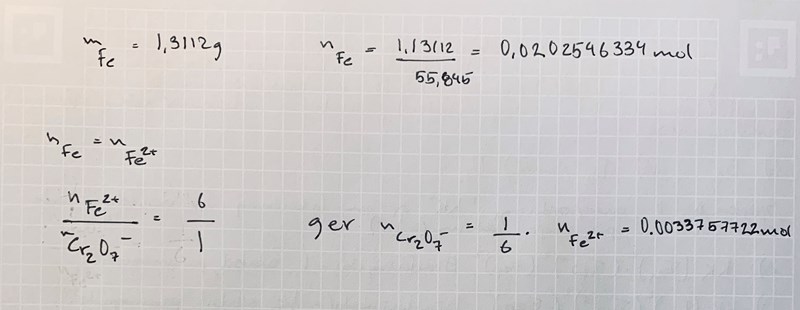 m_Fe = 1,3112g n_Fe = 1,13112 / 55,845 = 0,0202546334 mol
n_Fe = n_Fe²⁺
n_Fe²⁺ / n_Cr₂O₇⁻ = 6 / 1 ger n_Cr₂O₇⁻ = 1/6 · n_Fe²⁺ = 0.0033757722mol